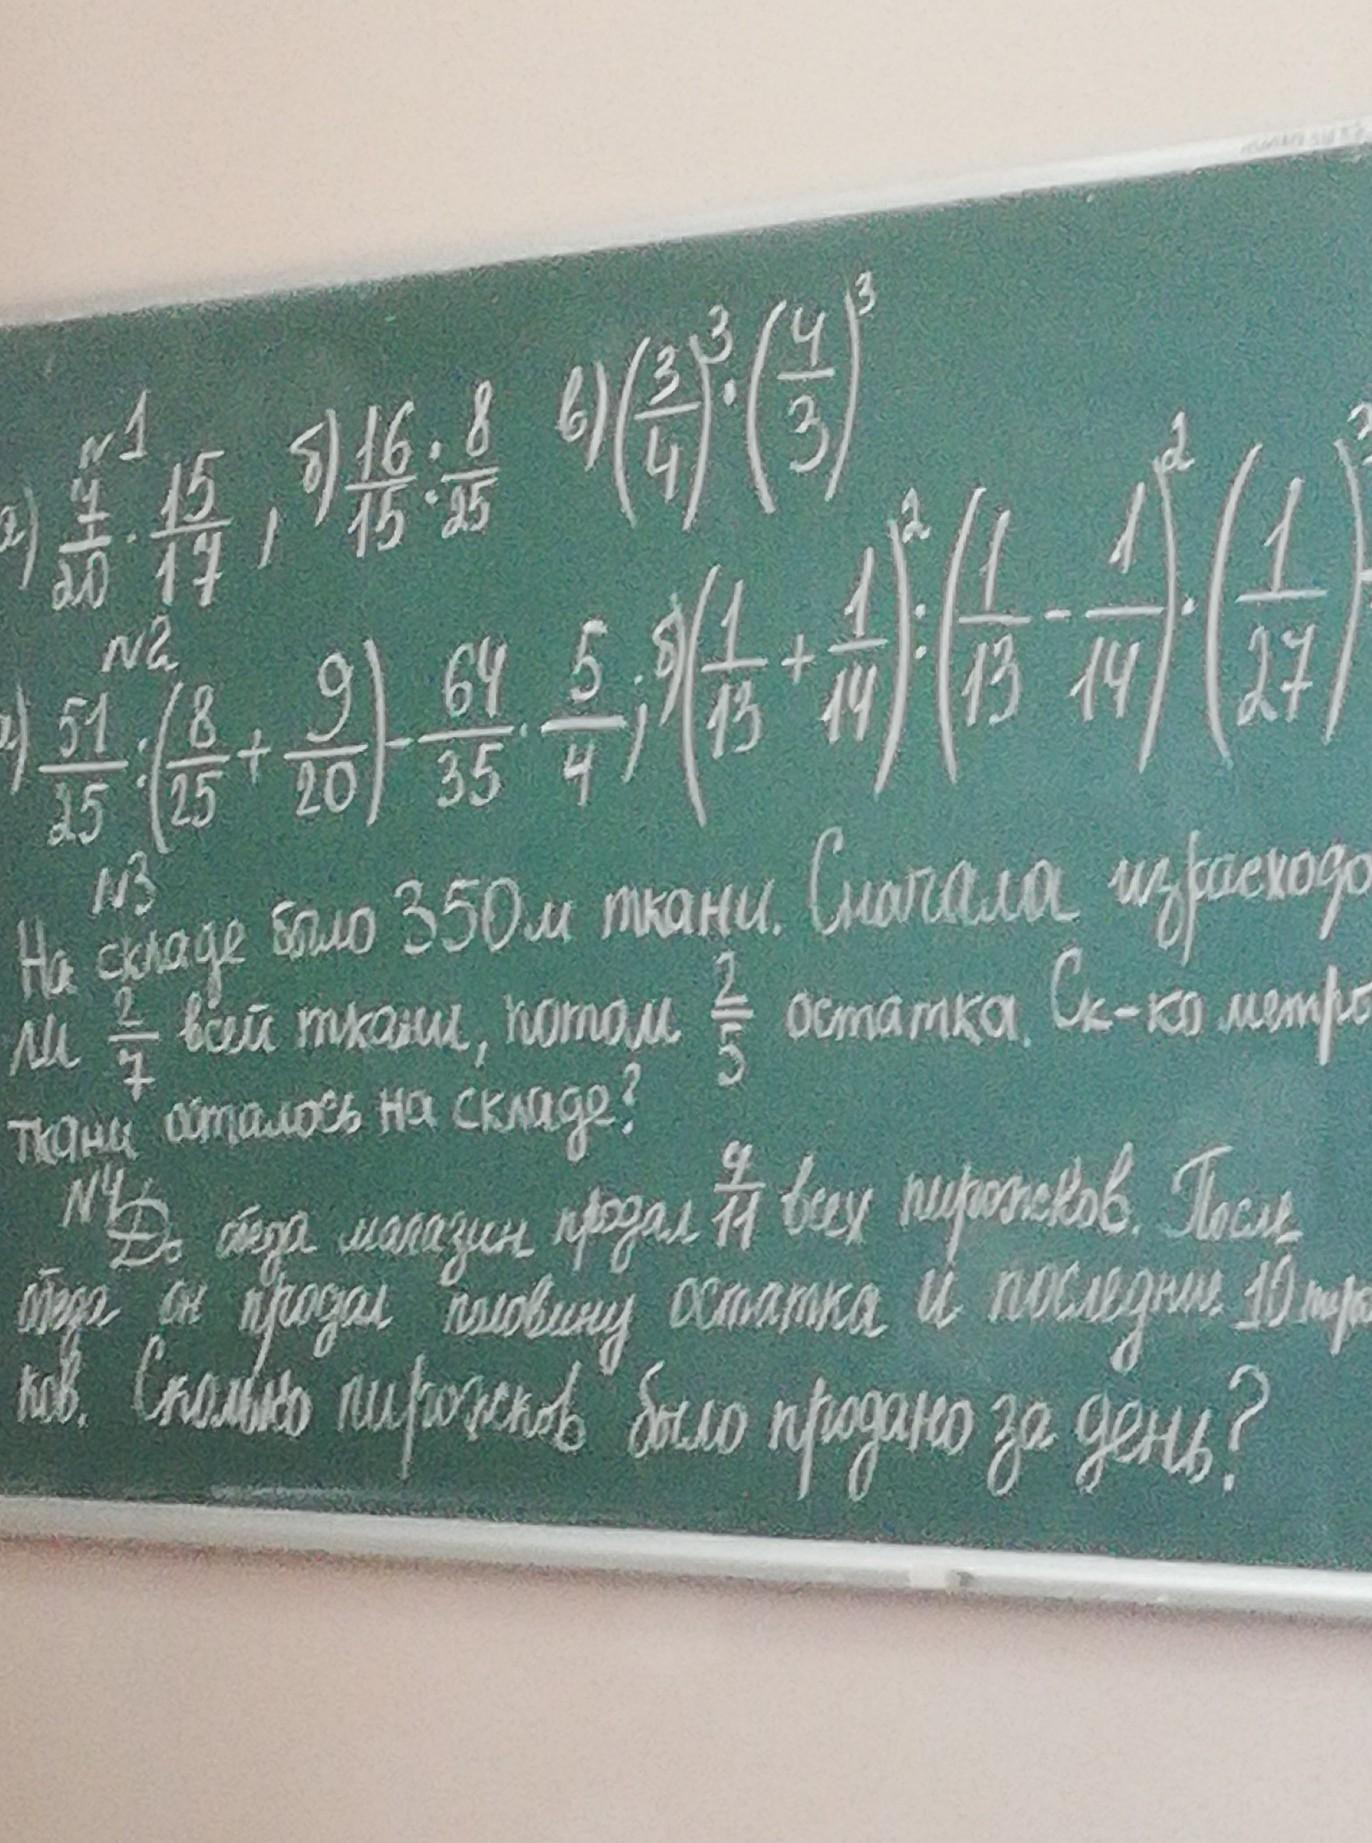 N1
а) 7/20 · 15/17 , б) 16/15 : 8/25 в) (3/4)³ · (4/3)³
N2
а) 51/25 : (8/25 + 9/20) - 64/35 · 5/4 ; б) (1/13 + 1/14)² : (1/13 - 1/14)² · (1/27)
N3
На складе было 350м ткани. Сначала израсходо
ли 2/7 всей ткани, потом 2/5 остатка. Ск-ко метро
ткани осталось на складе?
N4
До обеда магазин продал /11 всех пирожков. После
обеда он продал половину остатка и последние 10 пиро
ков. Сколько пирожков было продано за день?